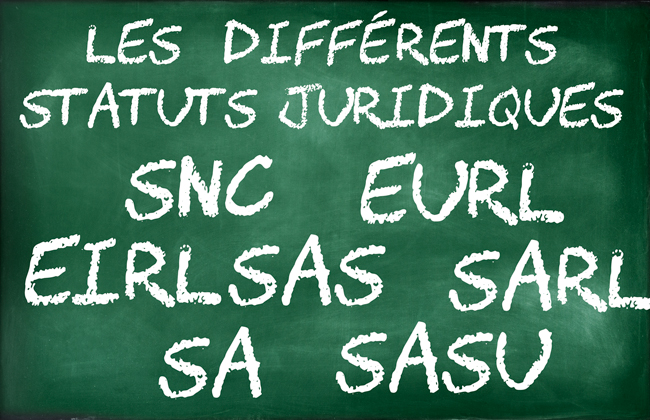 LES DIFFÉRENTS
STATUTS JURIDIQUES
SNC EURL
EIRLSAS SARL
SA SASU